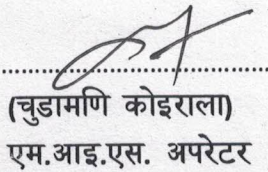 (चुडामणि कोइराला)
एम.आइ.एस. अपरेटर